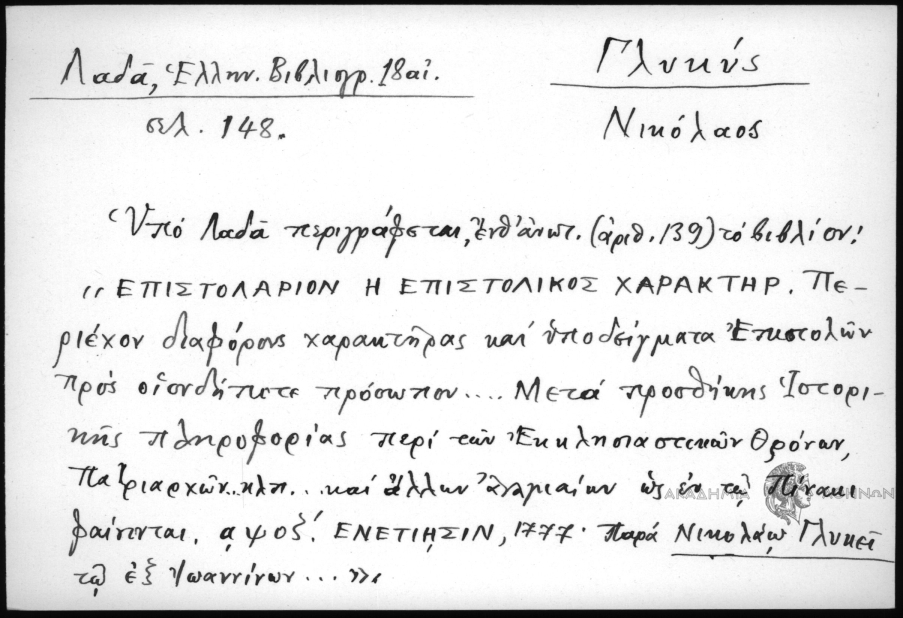 Λαδᾶ, Ἑλλην. Βιβλιογρ. 18 αἰ.
σελ. 148.
Γλυκύς
Νικόλαος
Ὑπό Λαδᾶ περιγράφεται, ἔνθ' ἀνωτ. (ἀριθ. 139) τό βιβλίον:
"ΕΠΙΣΤΟΛΑΡΙΟΝ Η ΕΠΙΣΤΟΛΙΚΟΣ ΧΑΡΑΚΤΗΡ. Πε-
ριέχον διαφόρους χαρακτῆρας καί ὑποδείγματα Ἐπιστολῶν
πρός οἱονδήπετε πρόσωπον.... Μετά προσθήκης Ἱστορι-
κῆς πληροφορίας περί τῶν Ἐκκλησιαστικῶν Θρόνων,
Πατριαρχῶν.. κλπ... καί ἄλλων ἀναγκαίων ὡς ἐν τῷ Πίνακι
φαίνονται. αψοζ΄. ΕΝΕΤΙῌΣΙΝ, 1777. Παρά Νικολάῳ Γλυκεῖ
τῷ ἐξ Ἰωαννίνων...»
ΑΚΑΔΗΜΙΑ ΑΘΗΝΩΝ